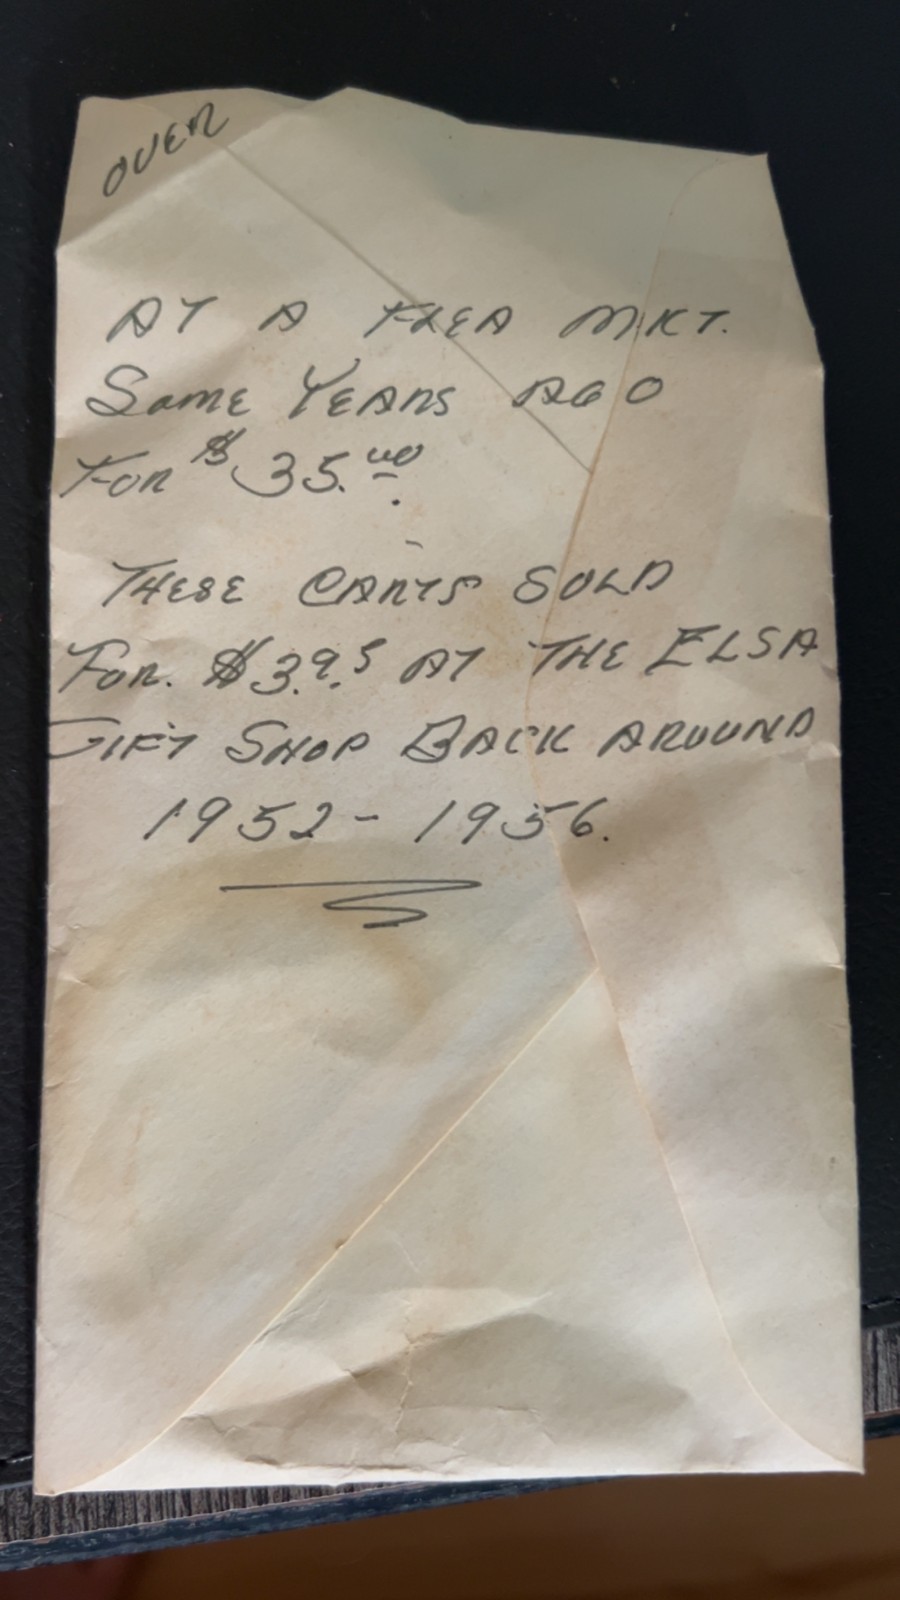 OVER
AT A FLEA MKT.
SOME YEARS AGO
FOR $35.00.
THESE CARTS SOLD
FOR. $3.95 AT THE ELSA
GIFT SHOP BACK AROUND
1952 - 1956.